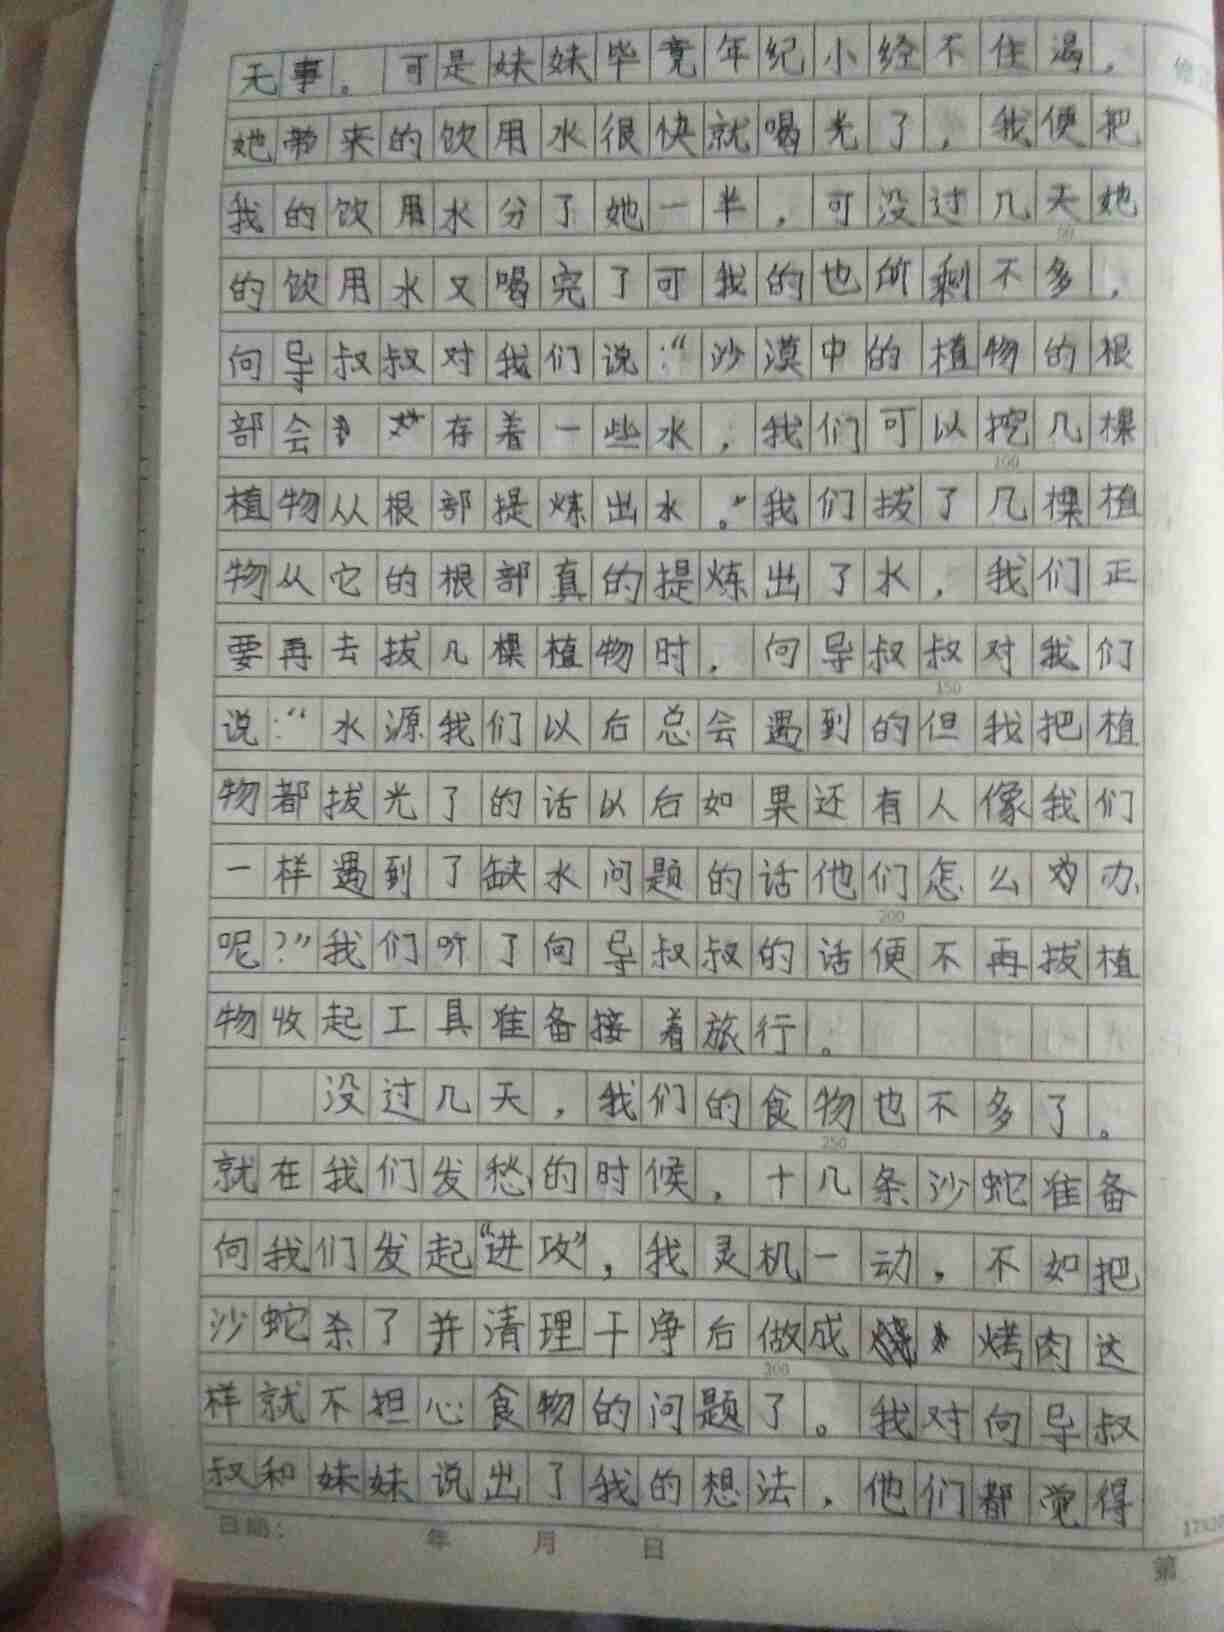 无事。可是妹妹毕竟年纪小经不住渴，
她带来的饮用水很快就喝光了，我便把
我的饮用水分了她一半，可没过几天她
的饮用水又喝完了可我的也所剩不多，
向导叔叔对我们说：“沙漠中的植物的根
部会存着一些水，我们可以挖几棵
植物从根部提炼出水。”我们拔了几棵植
物从它的根部真的提炼出了水，我们正
要再去拔几棵植物时，向导叔叔对我们
说：“水源我们以后总会遇到的但我把植
物都拔光了的话以后如果还有人像我们
一样遇到了缺水问题的话他们怎么办
呢？”我们听了向导叔叔的话便不再拔植
物收起工具准备接着旅行。
没过几天，我们的食物也不多了。
就在我们发愁的时候，十几条沙蛇准备
向我们发起“进攻”，我灵机一动，不如把
沙蛇杀了并清理干净后做成烤肉这
样就不担心食物的问题了。我对向导叔
叔和妹妹说出了我的想法，他们都觉得
日期： 年 月 日
第